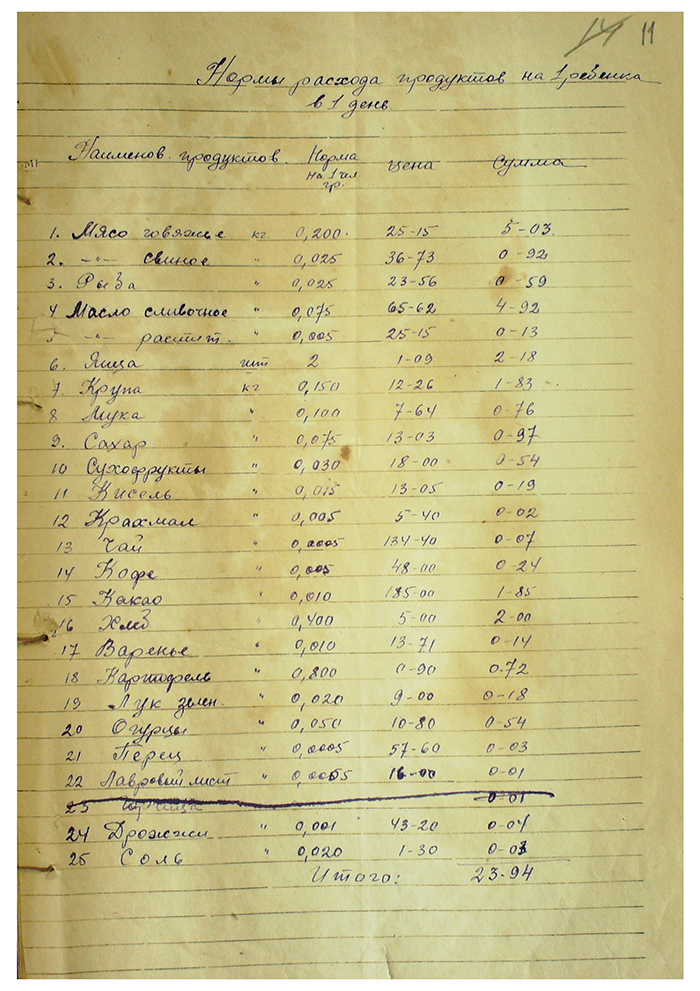 14 11
Нормы расхода продуктов на 1 ребенка
в 1 день.
Наименов. продуктов. Норма на 1 чел гр. цена Сумма
1. Мясо говяжье кг. 0,200. 25-15 5-03.
2. -"- свиное " 0,025 36-73 0-92
3. Рыба " 0,025 23-56 0-59
4 Масло сливочное " 0,075 65-62 4-92
5 -"- растит. " 0,005 25-15 0-13
6. Яйца шт 2 1-09 2-18
7 Крупа кг 0,150 12-26 1-83
8 Мука " 0,100 7-64 0-76
9. Сахар " 0,075 13-03 0-97
10 Сухофрукты " 0,030 18-00 0-54
11 Кисель " 0,015 13-05 0-19
12 Крахмал " 0,005 5-40 0-02
13 Чай " 0,0005 134-40 0-07
14 Кофе " 0,005 48-00 0-24
15 Какао " 0,010 185-00 1-85
16 Хлеб " 0,400 5-00 2-00
17 Варенье " 0,010 13-71 0-14
18 Картофель " 0,800 0-90 0-72
19 Лук зелен. " 0,020 9-00 0-18
20 Огурцы " 0,050 10-80 0-54
21 Перец " 0,0005 57-60 0-03
22 Лавровый лист " 0,0005 16-00 0-01
23 Горчица 0-01
24 Дрожжи " 0,001 43-20 0-04
25 Соль " 0,020 1-30 0-03
Итого: 23-94